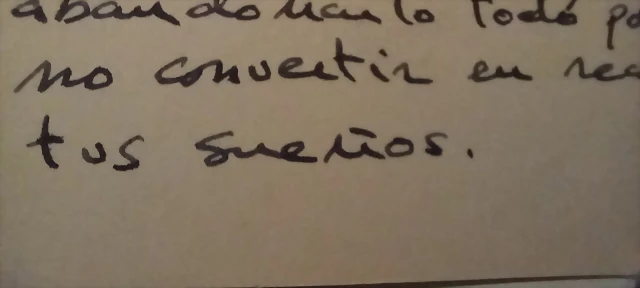 abandonarlo todo po
no convertir en rea
tus sueños.